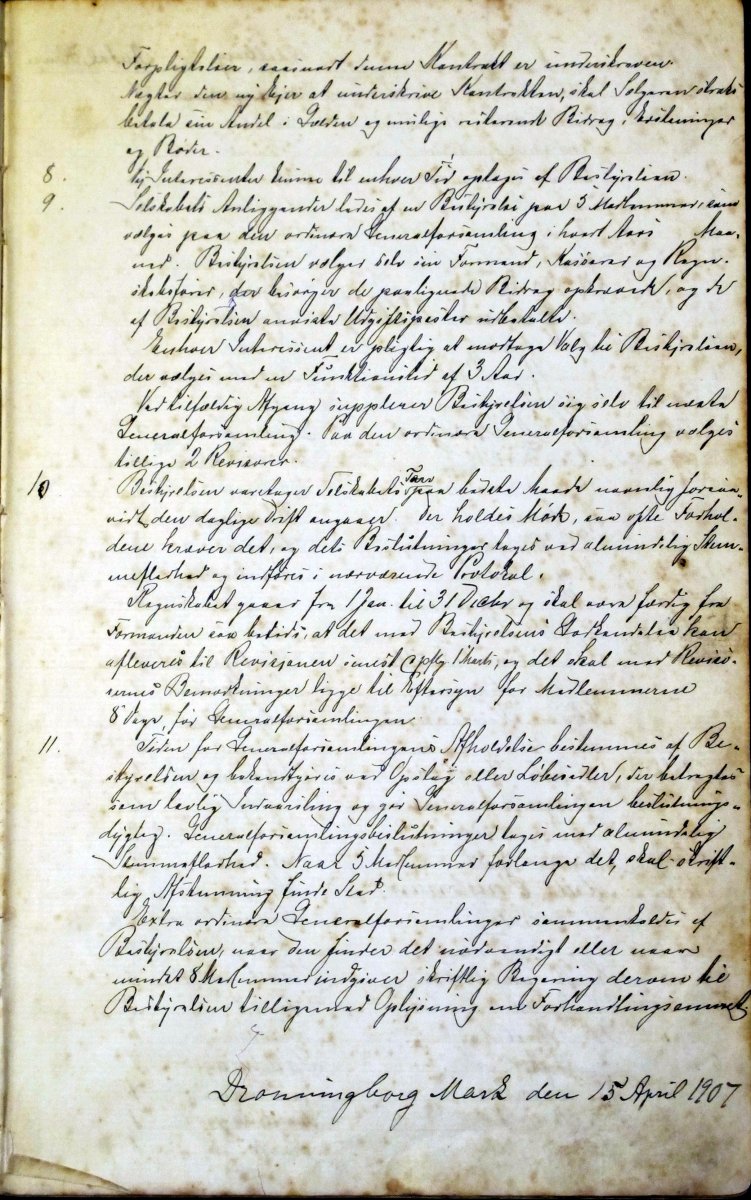 Forpligtelser, saasnart denne Kontrakt er underskreven.
Nægter den ny Ejer at underskrive Kontrakten, skal Sælgeren straks
betale sin Andel i Gælden og mulige resterende Bidrag, Erstatninger
og Bøder.
8. Ny Interessenter kunne til enhver Tid optages af Bestyrelsen.
9. Selskabets Anliggender ledes af en Bestyrelse paa 5 Medlemmer, som
vælges paa den ordinære Generalforsamling i hvert Aars Maa-
ned. Bestyrelsen vælger selv sin Formand, Kasserer og Regn-
skabsfører, der besørger de paalignede Bidrag opkrævede, og de
af Bestyrelsen anviste Udgiftsposter udbetalte.
Enhver Interessent er pligtig at modtage Valg til Bestyrelsen,
der vælges med en Funktionstid af 3 Aar.
Ved tilfældig Afgang supplerer Bestyrelsen sig selv til næste
Generalforsamling. Paa den ordinære Generalforsamling vælges
tillige 2 Revisorer.
10 Bestyrelsen varetager Selskabets Tarv paa bedste Maade navnlig forsaa-
vidt den daglige Drift angaaer. Der holdes Møde, saa ofte Forhol-
dene kræver det, og dets Beslutninger tages ved almindelig Stem-
meflerhed og indføres i nærværende Protokol.
Regnskabet gaaer fra 1 Jan. til 31 Decbr og skal være færdig fra
Formanden saa betids, at det med Bestyrelsens Godkendelse kan
afleveres til Revisionen senest 1 Marts, og det skal med Reviso-
rernes Bemærkninger ligge til Eftersyn for Medlemmerne
8 Dage før Generalforsamlingen.
11. Tiden for Generalforsamlingens Afholdelse bestemmes af Be-
styrelsen og bekendtgøres ved Opslag eller Løbesedler, der betragtes
som lovlig Indvarsling og gør Generalforsamlingen beslutnings-
dygtig. Generalforsamlingsbeslutninger tages med almindelig
Stemmeflerhed. Naar 5 Medlemmer forlange det, skal skrift-
lig Afstemning finde Sted.
Extra ordinære Generalforsamlinger sammenkaldes af
Bestyrelsen, naar den finder det nødvendigt eller naar
mindst 8 Medlemmer indgiver skriftlig Begæring derom til
Bestyrelsen tilligemed Oplysning om Forhandlingsemnet.
Dronningborg Mark den 15 April 1907